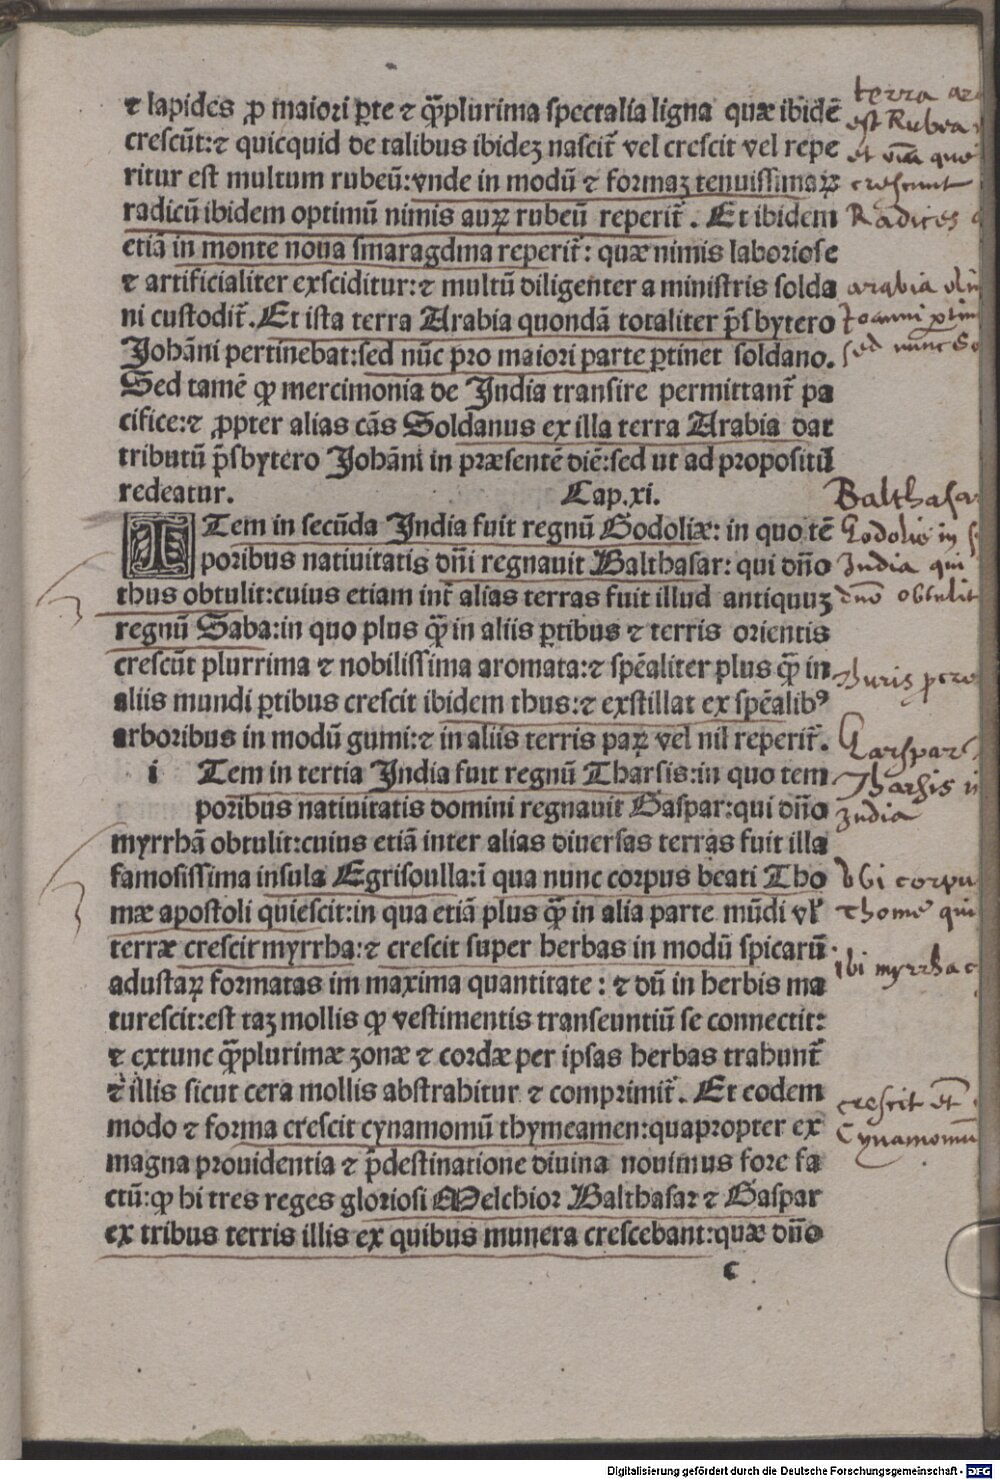 ⁊ lapides ꝓ maiori ꝑte ⁊ q̃plurima spectalia ligna quæ ibidẽ
crescũt:⁊ quicquid de talibus ibideꝫ nascit᷑ vel crescit vel repe
ritur est multum rubeũ:vnde in modũ ⁊ formaꝫ tenuissimaꝝ
radicũ ibidem optimũ nimis auꝝ rubeũ reperit᷑. Et ibidem
etiã in monte noua smaragdina reperit᷑: quæ nimis laboriose
⁊ artificialiter exsciditur:⁊ multũ diligenter a ministris solda
ni custodit᷑. Et ista terra Arabia quondã totaliter p̃sbytero
Johãni pertinebat:sed nũc pro maiori parte ꝑtinet soldano.
Sed tamẽ ꝙ mercimonia de India transire permittant᷑ pa
cifice:⁊ ꝓpter alias cãs Soldanus ex illa terra Arabia dat
tributũ p̃sbytero Johãni in præsentẽ diẽ:sed ut ad propositũ
redeatur. Cap.xi.
ITem in secũda India fuit regnũ Godoliæ: in quo tẽ
poribus natiuitatis dñi regnauit Balthasar: qui dño
thus obtulit:cuius etiam int᷑ alias terras fuit illud antiquuꝫ
regnũ Saba:in quo plus q̃ in aliis ꝑtibus ⁊ terris orientis
crescũt plurrima ⁊ nobilissima aromata:⁊ spẽaliter plus q̃ in
aliis mundi ꝑtibus crescit ibidem thus:⁊ exstillat ex spẽalibꝰ
arboribus in modũ gumi:⁊ in aliis terris paꝝ vel nil reperit᷑.
i Tem in tertia India fuit regnũ Tharsis:in quo tem
poribus natiuitatis domini regnauit Gaspar:qui dño
myrrhã obtulit:cuius etiã inter alias diuersas terras fuit illa
famosissima insula Egrisoulla:ĩ qua nunc corpus beati Tho
mæ apostoli quiescit:in qua etiã plus q̃ in alia parte mũdi vl᷑
terræ crescit myrrha:⁊ crescit super herbas in modũ spicarũ
adustaꝝ formatas im maxima quantitate: ⁊ dũ in herbis ma
turescit:est taꝫ mollis ꝙ vestimentis transeuntiũ se connectit:
⁊ extunc q̃plurimæ zonæ ⁊ cordæ per ipsas herbas trahunt᷑
⁊ illis sicut cera mollis abstrahitur ⁊ comprimit᷑. Et eodem
modo ⁊ forma crescit cynamomũ thymeamen:quapropter ex
magna prouidentia ⁊ p̃destinatione diuina nouimus fore fa
ctũ:ꝙ hi tres reges gloriosi Melchior Balthasar ⁊ Gaspar
ex tribus terris illis ex quibus munera crescebant:quæ dño
c
terra
est Rubea
crescunt
Radices
arabia
Joanni
sed nunc
Balthasar
Godolie in
India qui
dño obtulit
Thuris
Gaspar
Tharsis
India
Vbi corpu
Thome qui
ibi myrrha
crescit et
Cynamomũ
Digitalisierung gefördert durch die Deutsche Forschungsgemeinschaft - DFG